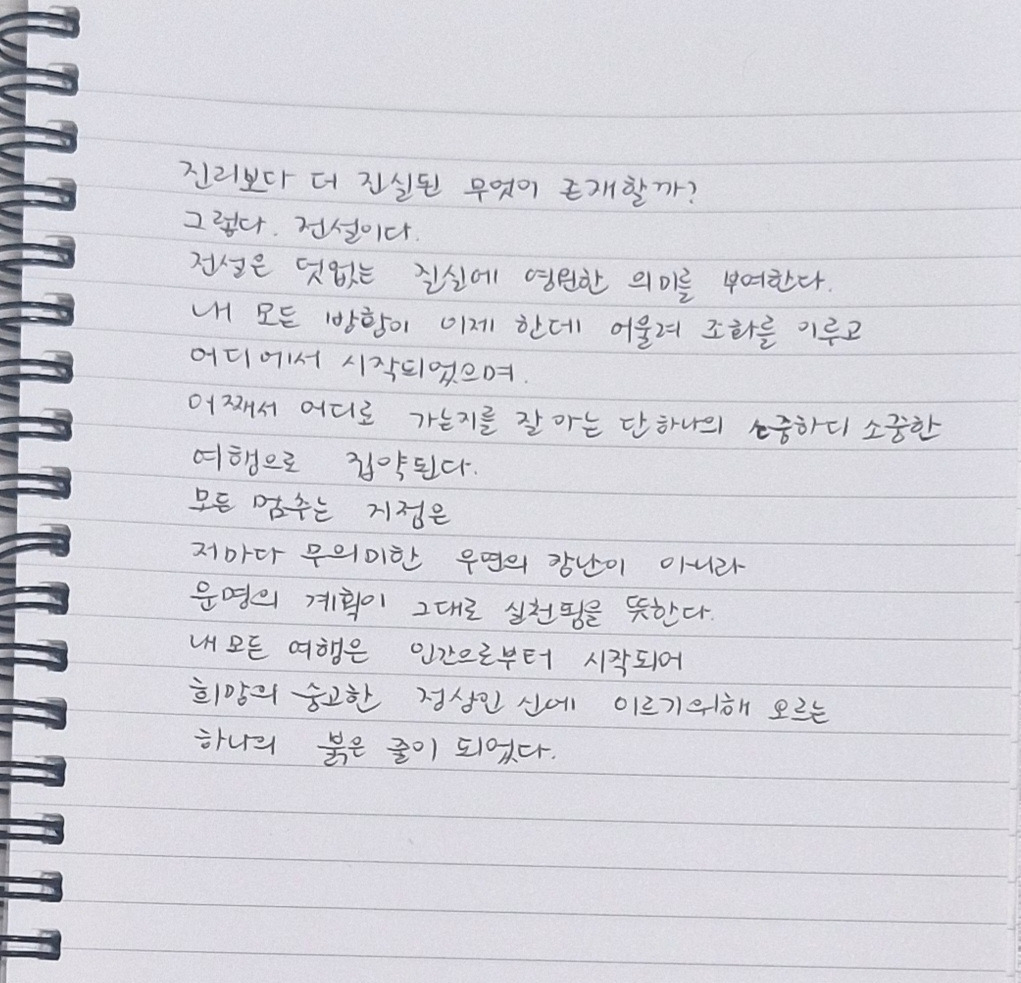 진리보다 더 진실된 무엇이 존재할까?
그렇다. 전설이다.
전설은 덧없는 진실에 영원한 의미를 부여한다.
내 모든 방황이 이제 한데 어울려 조화를 이루고
어디에서 시작되었으며.
어째서 어디로 가는지를 잘 아는 단 하나의 소중하디 소중한
여행으로 집약된다.
모든 멈추는 지점은
저마다 무의미한 우연의 장난이 아니라
운명의 계획이 그대로 실천됨을 뜻한다.
내 모든 여행은 인간으로부터 시작되어
희망의 숭고한 정상인 신에 이르기위해 오르는
하나의 붉은 줄이 되었다.